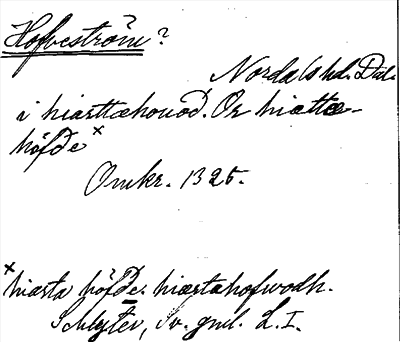 Hofveström?
Nordals hd. Dal.
i hiarttæhouod. Or hiættæ-
höfde x
Omkr. 1325.
x hiærta höfde. hiærtahofwodh.
Schlyter, Sv. gml. L. I.